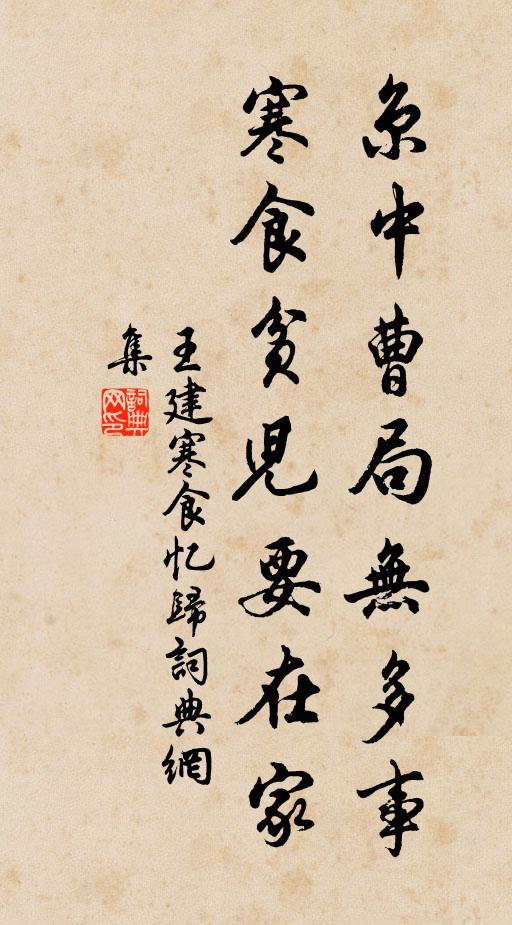 京中曹局無多事
寒食貧兒要在家
王建寒食忆歸詞典網
集
詞典
网印